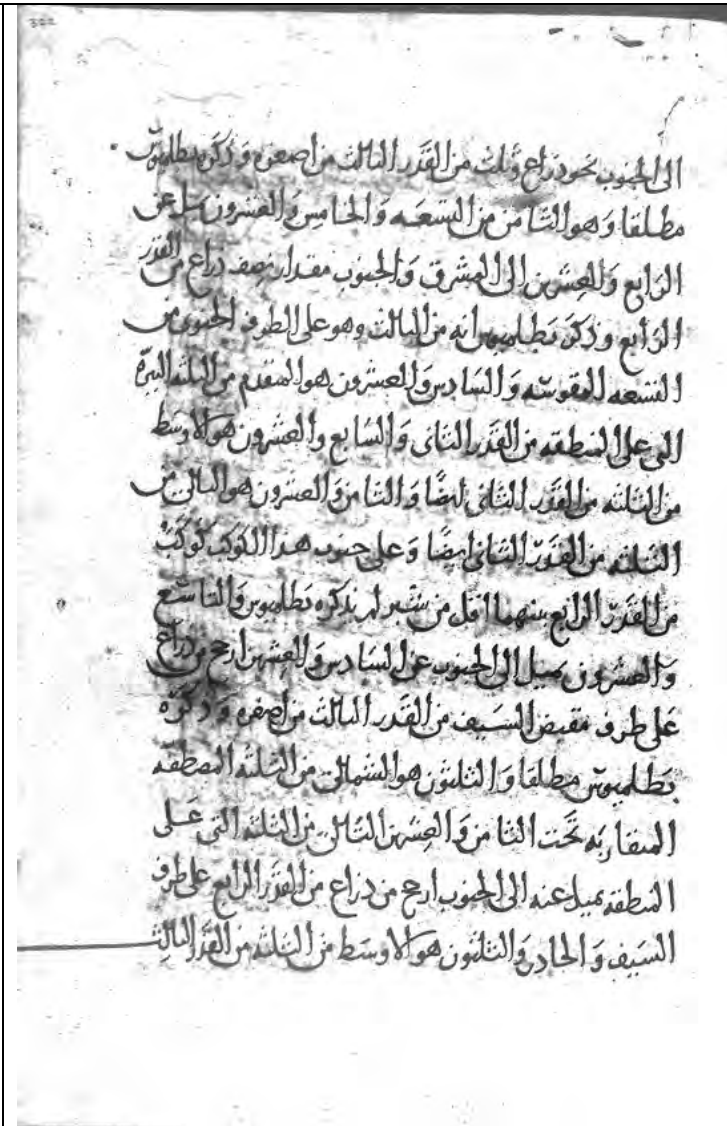 322
الى الجنوب نحو ذراع وثلث من القدر الثالث من اصغره وذكره بطلميوس
مطلقا وهو الثامن من التسعه والخامس والعشرون يميل عن
الرابع والعشرين الى المشرق والجنوب مقدار نصف ذراع من القدر
الرابع وذكر بطلميوس انه من الثالث وهو على الطرف الجنوبى من
التسعه المقوسه والسادس والعشرون هو المتقدم من الثلثه النيرة
التى على المنطقه من القدر الثانى والسابع والعشرون هو الاوسط
من الثلثه من القدر الثانى ايضا والثامن والعشرون هو التالى من
الثلثه من القدر الثانى ايضا وعلى جنوب هذا الكوكب كوكب
من القدر الرابع بينهما اقل من شبر لم يذكره بطلميوس والتاسع
والعشرون يميل الى الجنوب عن السادس والعشرين ارجح من ذراع
على طرف مقبض السيف من القدر الثالث من اصغره وذكره
بطلميوس مطلقا والثلثون هو الشمالى من الثلثه المصطفه
المتقاربه تحت الثامن والعشرين التالى من الثلثه التى على
المنطقه يميل عنه الى الجنوب ارجح من ذراع من القدر الرابع على طرف
السيف والحادى والثلثون هو الاوسط من الثلثه من القدر الثالث